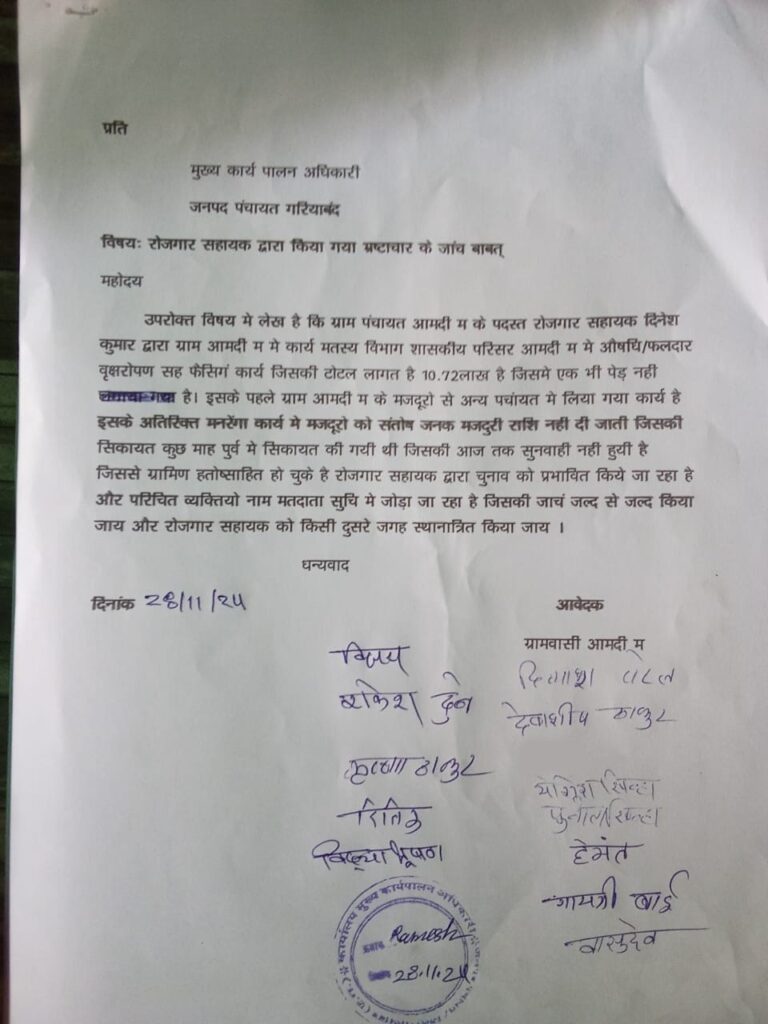 प्रति
मुख्य कार्य पालन अधिकारी
जनपद पंचायत गरियाबंद
विषयः रोजगार सहायक द्वारा किया गया भ्रष्टाचार के जांच बाबत्
महोदय
उपरोक्त विषय मे लेख है कि ग्राम पंचायत आमदी म के पदस्त रोजगार सहायक दिनेश
कुमार द्वारा ग्राम आमदी म मे कार्य मतस्य विभाग शासकीय परिसर आमदी म मे औषधि/फलदार
वृक्षरोपण सह फैसिगं कार्य जिसकी टोटल लागत है 10.72लाख है जिसमे एक भी पेड़ नही
लगाया गया है। इसके पहले ग्राम आमदी म के मजदूरो से अन्य पचांयत मे लिया गया कार्य है
इसके अतिरिक्त मनरेंगा कार्य मे मजदूरो को संतोष जनक मजदुरी राशि नही दी जाती जिसकी
सिकायत कुछ माह पुर्व मे सिकायत की गयी थी जिसकी आज तक सुनवाही नही हुयी है
जिससे ग्रामिण हतोष्साहित हो चुके है रोजगार सहायक द्वारा चुनाव को प्रभावित किये जा रहा है
और परिचित व्यक्तियो नाम मतदाता सुचि मे जोड़ा जा रहा है जिसकी जाचं जल्द से जल्द किया
जाय और रोजगार सहायक को किसी दुसरे जगह स्थानात्रित किया जाय ।
धन्यवाद
दिनांक 28/11/24 आवेदक
ग्रामवासी आमदी म
विजय
राकेश
देवाशीष ठाकुर
कृष्णा ठाकुर
योगेश सिन्हा
रितिक
सिन्हा
विद्या भूषण हेमंत
गायत्री बाई
वासुदेव
कार्यालय मुख्य कार्यपालन अधिकारी
Ramesh
28.11.24